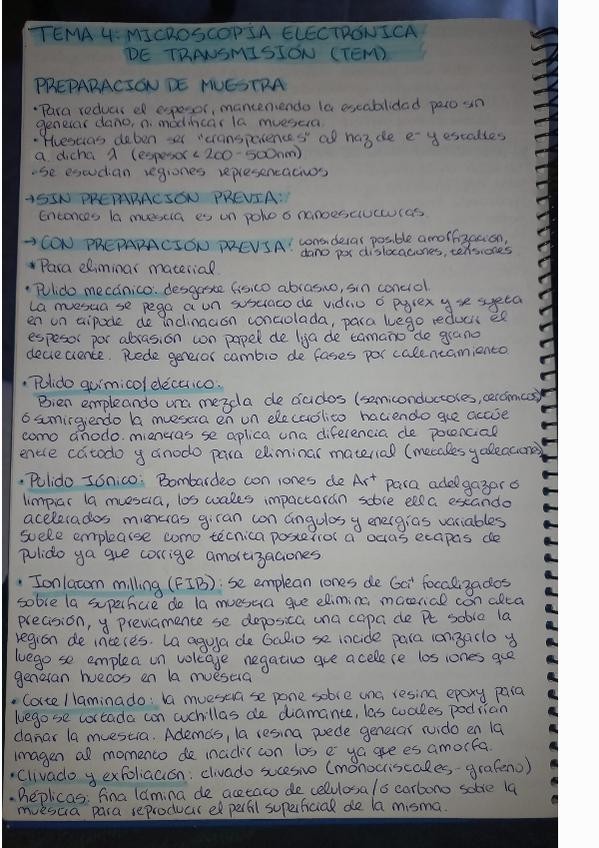 TEMA 4: MICROSCOPÍA ELECTRÓNICA
DE TRANSMISIÓN (TEM)
PREPARACIÓN DE MUESTRA
• Para reducir el espesor, manteniendo la estabilidad pero sin
generar daño, ni modificar la muestra.
• Muestras deben ser "transparentes" al haz de e- y estables
a dicha λ (espesor < 200-500nm)
• Se estudian regiones representativas
→ SIN PREPARACIÓN PREVIA:
Entonces la muestra es un polvo ó nanoestructuras.
→ CON PREPARACIÓN PREVIA: considerar posible amorfización,
daño por dislocaciones, tensiones.
* Para eliminar material.
• Pulido mecánico: desgaste físico abrasivo, sin control.
La muestra se pega a un sustrato de vidrio ó pyrex y se sujeta
en un trípode de inclinación controlada, para luego reducir el
espesor por abrasión con papel de lija de tamaño de grano
decreciente. Puede generar cambio de fases por calentamiento.
• Pulido químico/eléctrico:
Bien empleando una mezcla de ácidos (semiconductores, cerámicos)
ó sumirgiendo la muestra en un electrólito haciendo que actúe
como ánodo. mientras se aplica una diferencia de potencial
entre cátodo y ánodo para eliminar material (metales y aleaciones)
• Pulido Iónico: Bombardeo con iones de Ar+ para adelgazar ó
limpiar la muestra, los cuales impactarán sobre ella estando
acelerados mientras giran con ángulos y energías variables
Suele emplearse como técnica posterior a otras etapas de
pulido ya que corrige amortizaciones
• Ion/atom milling (FIB): Se emplean iones de Ga+ focalizados
sobre la superficie de la muestra que elimina material con alta
precisión, y previamente se deposita una capa de Pt sobre la
región de interés. La aguja de Galio se incide para ionizarlo y
luego se emplea un voltaje negativo que acelere los iones que
generan huecos en la muestra
• Corte/laminado: la muestra se pone sobre una resina epoxy para
luego se cortada con cuchillas de diamante, las cuales podrían
dañar la muestra. Además, la resina puede generar ruido en la
imagen al momento de incidir con los e- ya que es amorfa.
• Clivado y exfoliación: clivado sucesivo (monocristales - grafeno)
• Réplicas: fina lámina de acetato de celulosa/ó carbono sobre la
muestra para reproducir el perfil superficial de la misma.